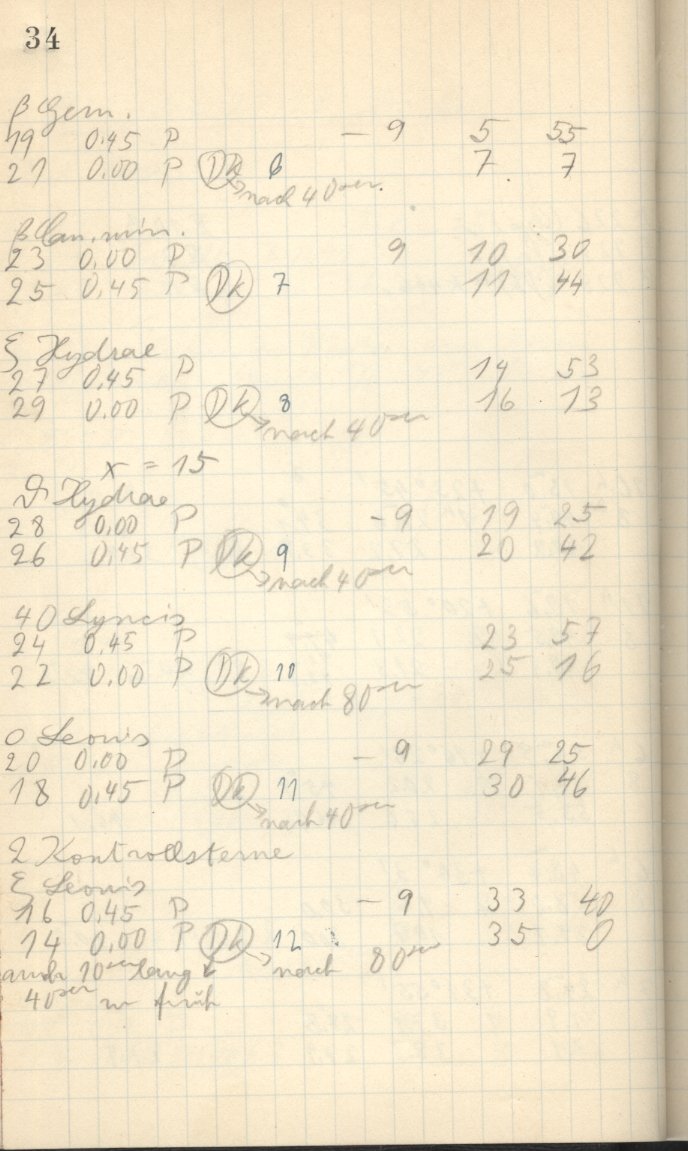 34
β Gem.
19 0.45 P — 9 5 55
21 0.00 P Dk 6 7 7
→ nach 40 sec.
β Can. min.
23 0.00 P 9 10 30
25 0.45 P Dk 7 11 44
ξ Hydrae
27 0.45 P 14 53
29 0.00 P Dk 8 16 13
→ nach 40 sec
x = 15
ϑ Hydrae
28 0.00 P - 9 19 25
26 0.45 P Dk 9 20 42
→ nach 40 sec
40 Lyncis
24 0.45 P 23 57
22 0.00 P Dk 10 25 16
→ nach 80 sec
o Leonis
20 0.00 P - 9 29 25
18 0.45 P Dk 11 30 46
→ nach 40 sec
2 Kontrollsterne
ε Leonis
16 0.45 P - 9 33 40
14 0.00 P Dk 12 35 0
→ nach 80 sec
10 sec lang
40 sec zu früh